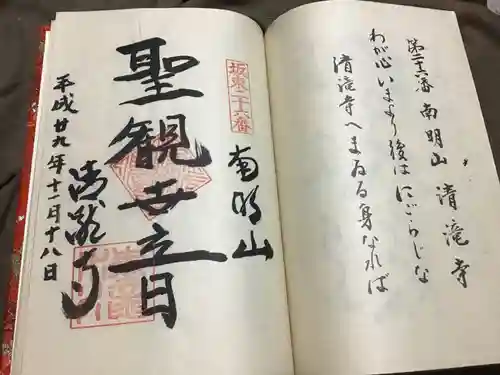 第二十六番 南明山 清滝寺
わが心いまより後はにごらじな
清滝寺へまゐる身なれば
坂東二十六番
南明山
聖観世音
清瀧寺
平成廿九年十一月十八日